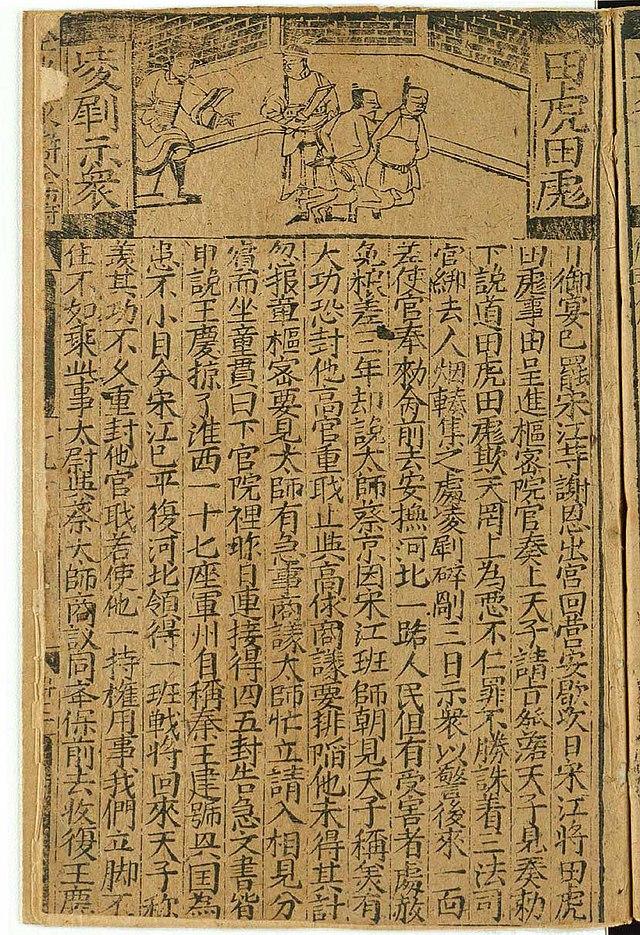 田虎田彪
凌剮示衆
御宴已罷宋江等謝恩出宫回营安歇次日宋江將田虎
田彪事由呈進樞密院官奏上天子請旨發落天子見奏勅
下說道田虎田彪欺天罔上為惡不仁罪不勝誅着三法司
官綁去人烟輳集之處凌剮碎剮三日示衆以警後來一面
差使官奉勅命前去安撫河北一路人民但有受害者處放
免粮差二年却說太師蔡京因宋江班師朝見天子稱羙有
大功恐封他高官重職止與高俅商議要排陷他未得其計
忽报董樞密要見太師有急事商議太師忙立請入相見分
賓而坐童貫曰下官院裡昨日連接得四五封告急文書皆
申說王慶掠了淮西一十七座軍州自稱秦王建號與国為
患不小目今宋江已平復河北領得一班戦將回來天子称
羡其功不久重封他官職若使他一持權用事我們立脚不
住不如乘此事太尉與蔡太師商議同奉保前去收復王慶